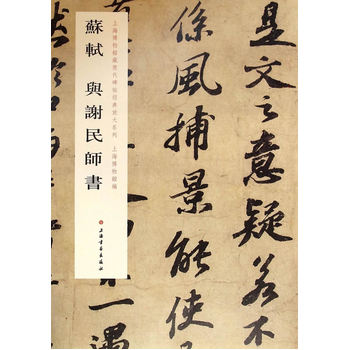 是文之意疑若不
係風捕景能使
不一遇
上海博物館藏歷代碑帖經典放大系列　上海博物館編
蘇軾　與謝民師書
上海書畫出版社